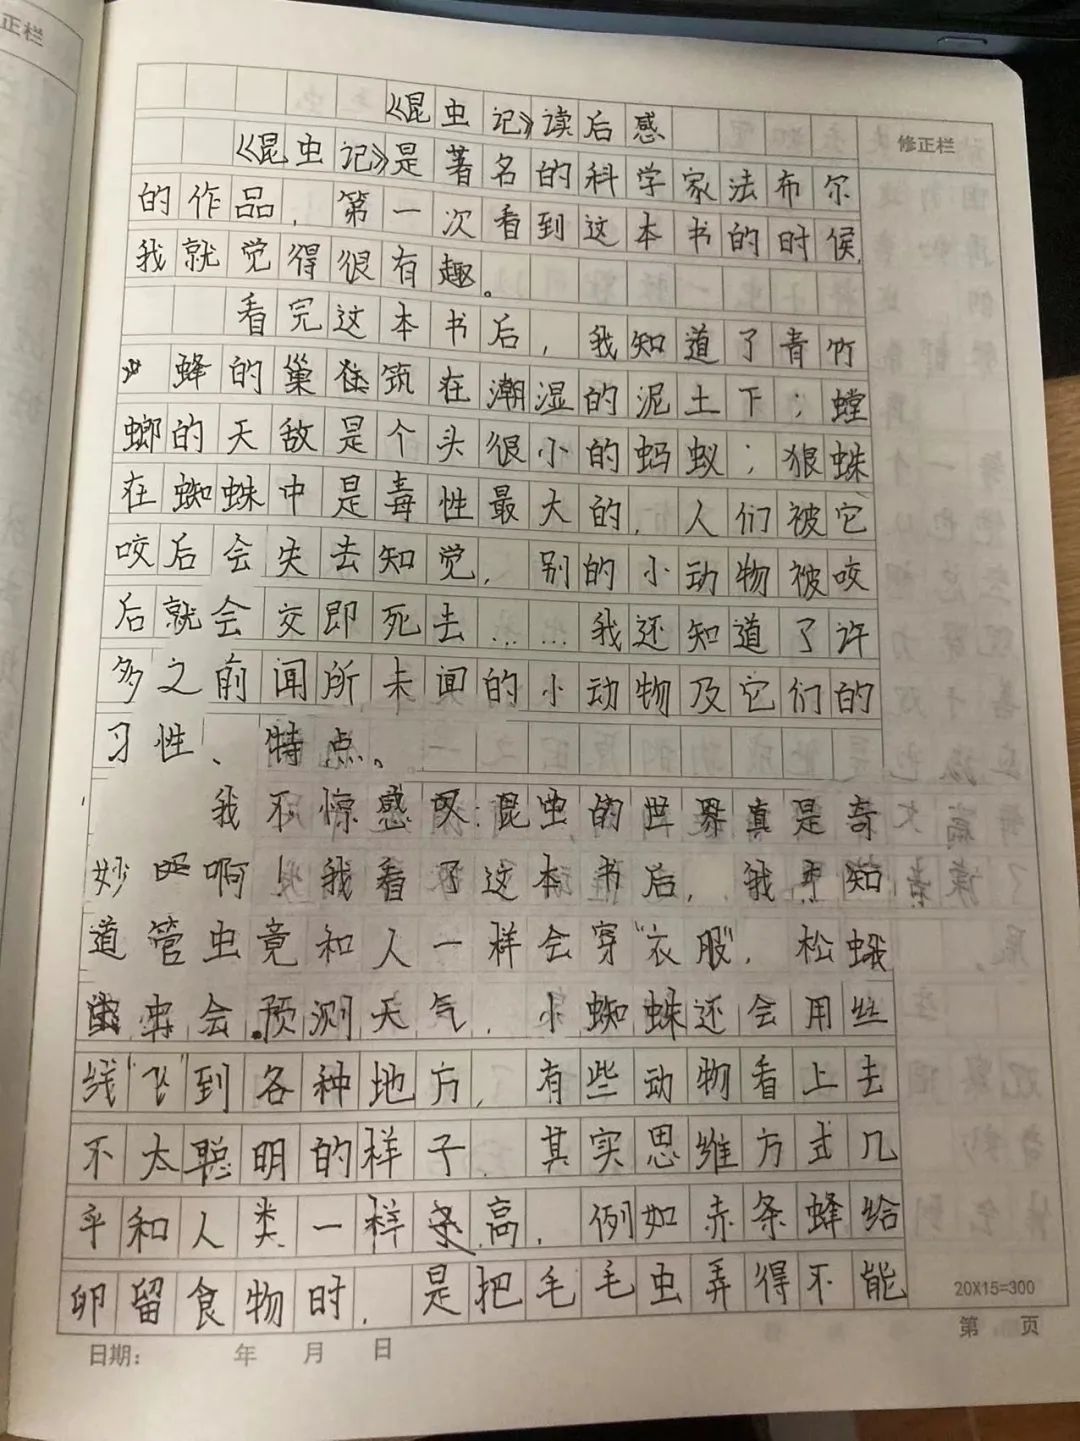 正栏
《昆虫记》读后感
修正栏
《昆虫记》是著名的科学家法布尔
的作品，第一次看到这本书的时候，
我就觉得很有趣。
看完这本书后，我知道了青竹
蜂的巢筑在潮湿的泥土下；螳
螂的天敌是个头很小的蚂蚁；狼蛛
在蜘蛛中是毒性最大的，人们被它
咬后会失去知觉，别的小动物被咬
后就会交即死去……我还知道了许
多之前闻所未闻的小动物及它们的
习性、特点。
我不惊感叹：昆虫的世界真是奇
妙啊！我看了这本书后，我才知
道管虫竟和人一样会穿“衣服”，松蛾
虫会预测天气，小蜘蛛还会用丝
线“飞”到各种地方，有些动物看上去
不太聪明的样子，其实思维方式几
乎和人类一样高，例如赤条蜂给
卵留食物时，是把毛毛虫弄得不能
20X15=300
日期： 年 月 日
第 页